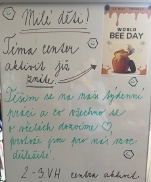 Milé děti!
WORLD
BEE DAY
Téma center
aktivit již
znáte
Těším se na naši týdenní
práci a co všechno se
o včelách dozvíme
protože jsou pro nás moc
důležité.
2-3VH centra aktivit